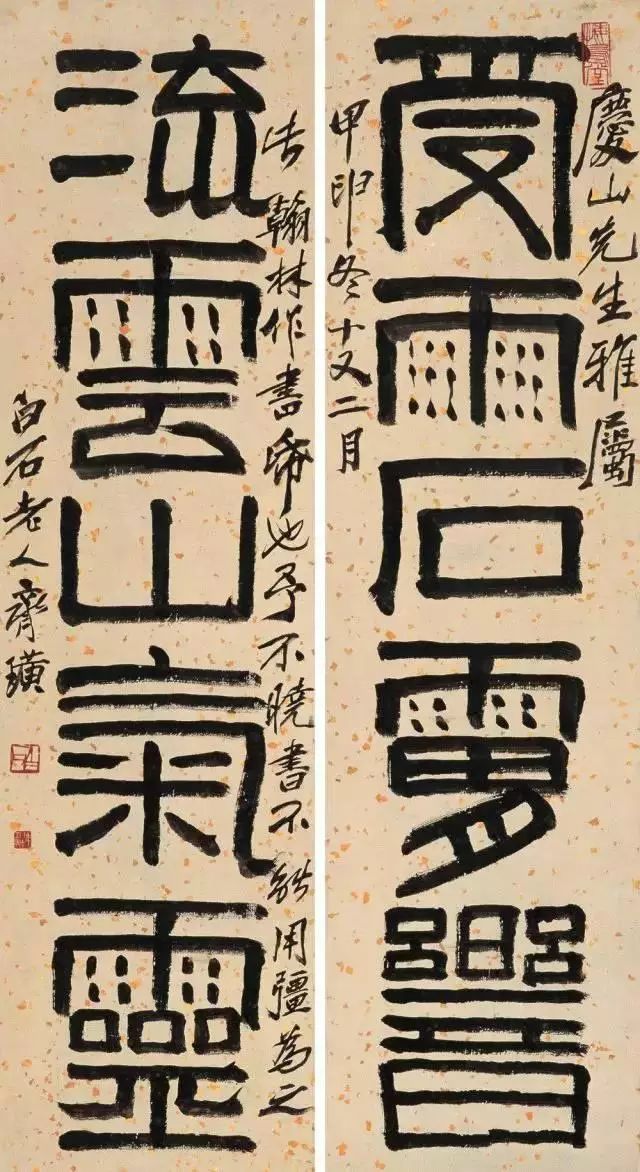 慶山先生雅屬
受雨石
甲申冬十又二月
翰林作書也予不曉書不能用彊為之
流雲山氣靈
白石老人齊璜